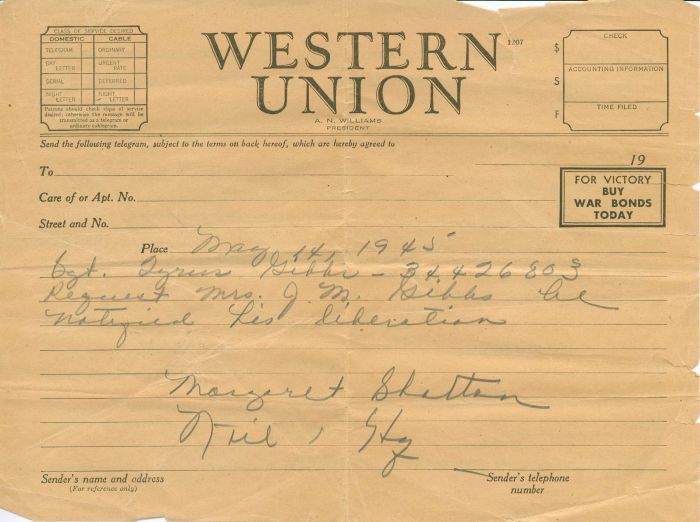 CLASS OF SERVICE DESIRED
DOMESTIC CABLE
TELEGRAM ORDINARY
DAY LETTER URGENT RATE
SERIAL DEFERRED
NIGHT LETTER NIGHT LETTER
Patrons should check class of service desired; otherwise the message will be transmitted as a telegram or ordinary cablegram.
WESTERN UNION
1207
A. N. WILLIAMS
PRESIDENT
$
S
F
CHECK
ACCOUNTING INFORMATION
TIME FILED
Send the following telegram, subject to the terms on back hereof, which are hereby agreed to
19
To
Care of or Apt. No.
Street and No.
FOR VICTORY
BUY
WAR BONDS
TODAY
Place May 14, 1945
Sgt. Tyrus Gibbs - 34426803
Request Mrs. J. M. Gibbs be
notified his liberation
Margaret Shattan
Ky
Sender's name and address
(For reference only)
Sender's telephone
number